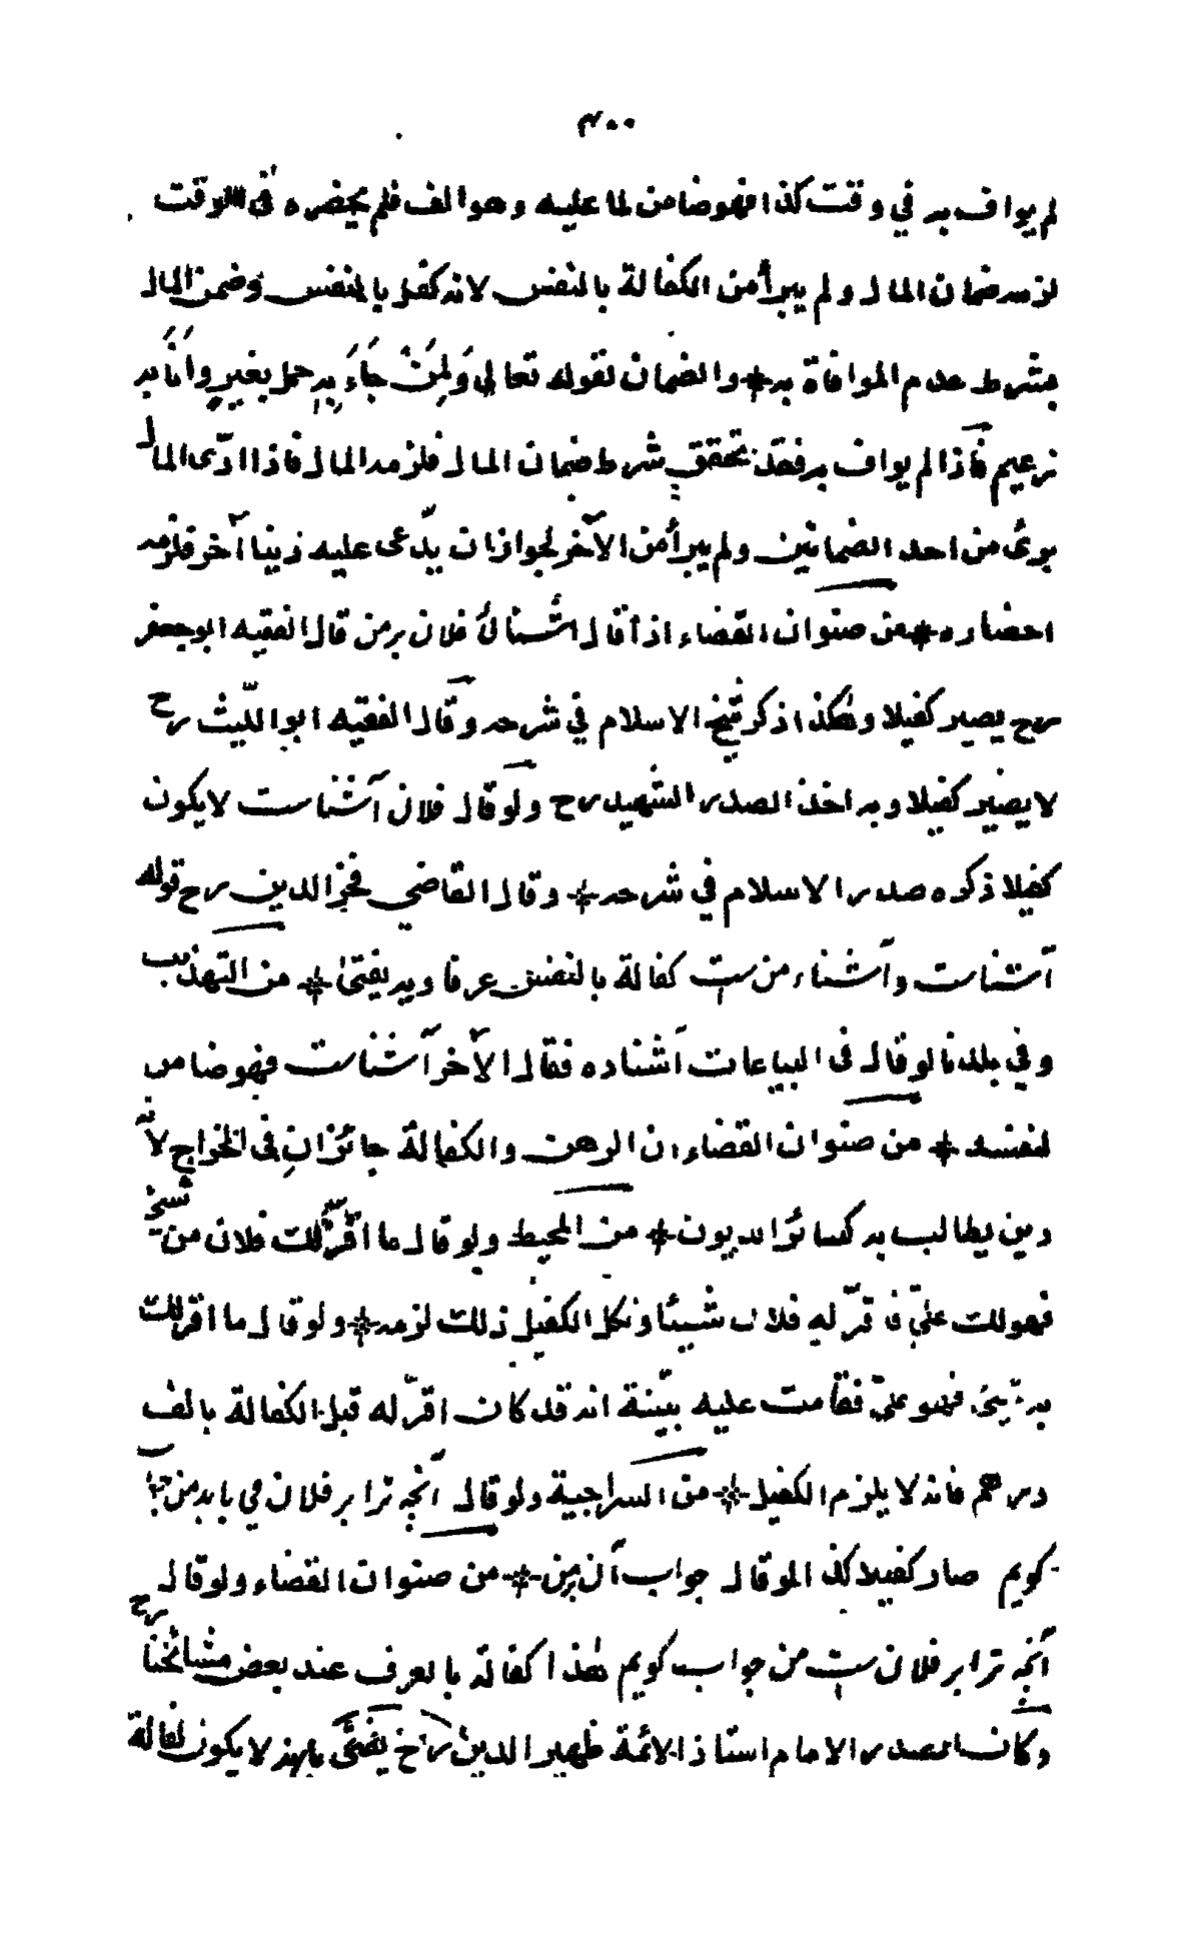 ٣٠٠
لم يواف به في وقت كذا فهو ضامن لما عليه وهو الف فلم يحضره في الوقت
لزمه ضمان المال ولم يبرأ من الكفالة بالنفس لانه كفل بالنفس وضمن المال
بشرط عدم الموافاة به * والضمان لقوله تعالى وَلِمَنْ جَاءَ بِهِ حمل بعيرٍ وانا به
زعيم فاذا لم يواف به فقد تحقق شرط ضمان المال فلزمه المال فاذا ادّى المال
برئ من احد الضمانين ولم يبرأ من الآخر لجواز ان يدّعى عليه دينا آخر فلزمه
احضاره * من صنوان القضاء اذا قال آشنائ فلان بر من قال الفقيه ابو جعفر
رح يصير كفيلا وهكذا ذكر شيخ الاسلام في شرحه وقال الفقيه ابو اللّيث رح
لا يصير كفيلا وبه اخذ الصدر الشهيد رح ولو قال فلان آشناست لا يكون
كفيلا ذكره صدر الاسلام في شرحه * وقال القاضي فخر الدين رح قوله
آشناست وآشناء من ست كفالة بالنفس عرفا وبه يفتى * من التهذيب
وفي بلدنا لو قال فى البياعات آشناده فقال الآخر آشناست فهو ضامن
لنفسه * من صنوان القضاء ان الرهن والكفالة جائزان فى الخراج لانّه
دين يطالب به كسائر الديون * من المحيط ولو قال ما اقرّ لك فلان من شئ
فهو لك علىّ فاقرّ له فلان شيئا ونكل الكفيل ذلك لزمه * ولو قال ما اقر لك
به شئ فهو علىّ فقامت عليه بيّنة انه قد كان اقرّ له قبل الكفالة بالف
درهم فانه لا يلزم الكفيل * من السراجية ولو قال آنچه ترا بر فلان مي بايد من جواب
كويم صار كفيلا كذا لو قال جواب آن بر من * من صنوان القضاء ولو قال
آنچه ترا بر فلان ست من جواب كويم هذا كفالة بالعرف عند بعض مشائخنا رح
وكان الصدر الامام استاذ الائمة ظهير الدين رح يفتى بانه لا يكون كفالة